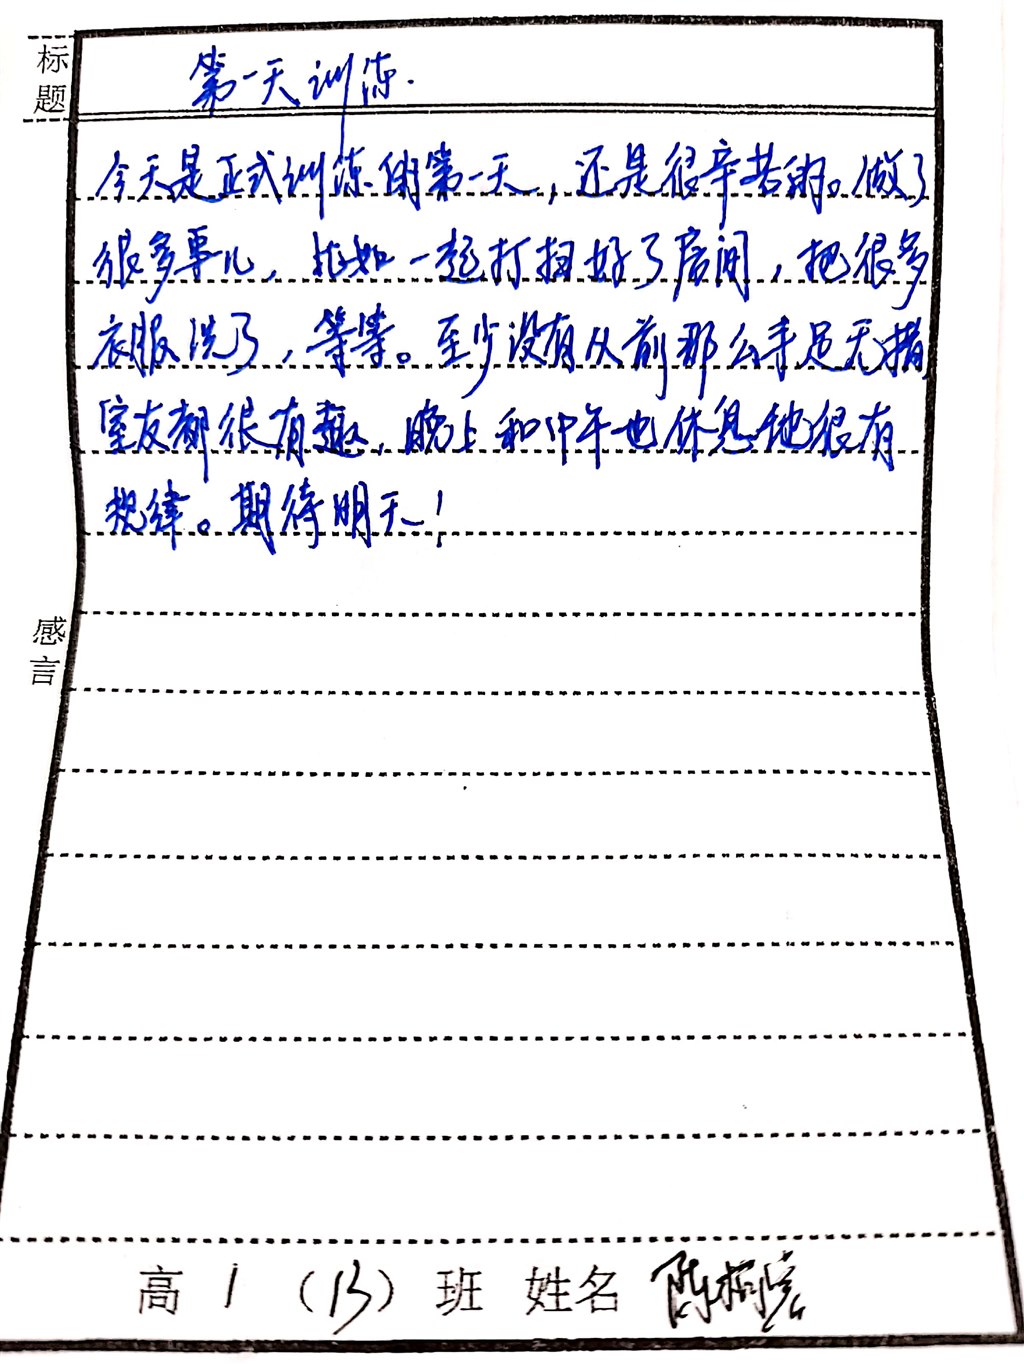 标题
第一天训练.
今天是正式训练的第一天，还是很辛苦的。做了
很多事儿，比如一起打扫好了房间，把很多
衣服洗了，等等。至少没有从前那么手足无措
室友都很有趣，晚上和中午也休息地很有
规律。期待明天！
感言
高1（13）班 姓名 陈